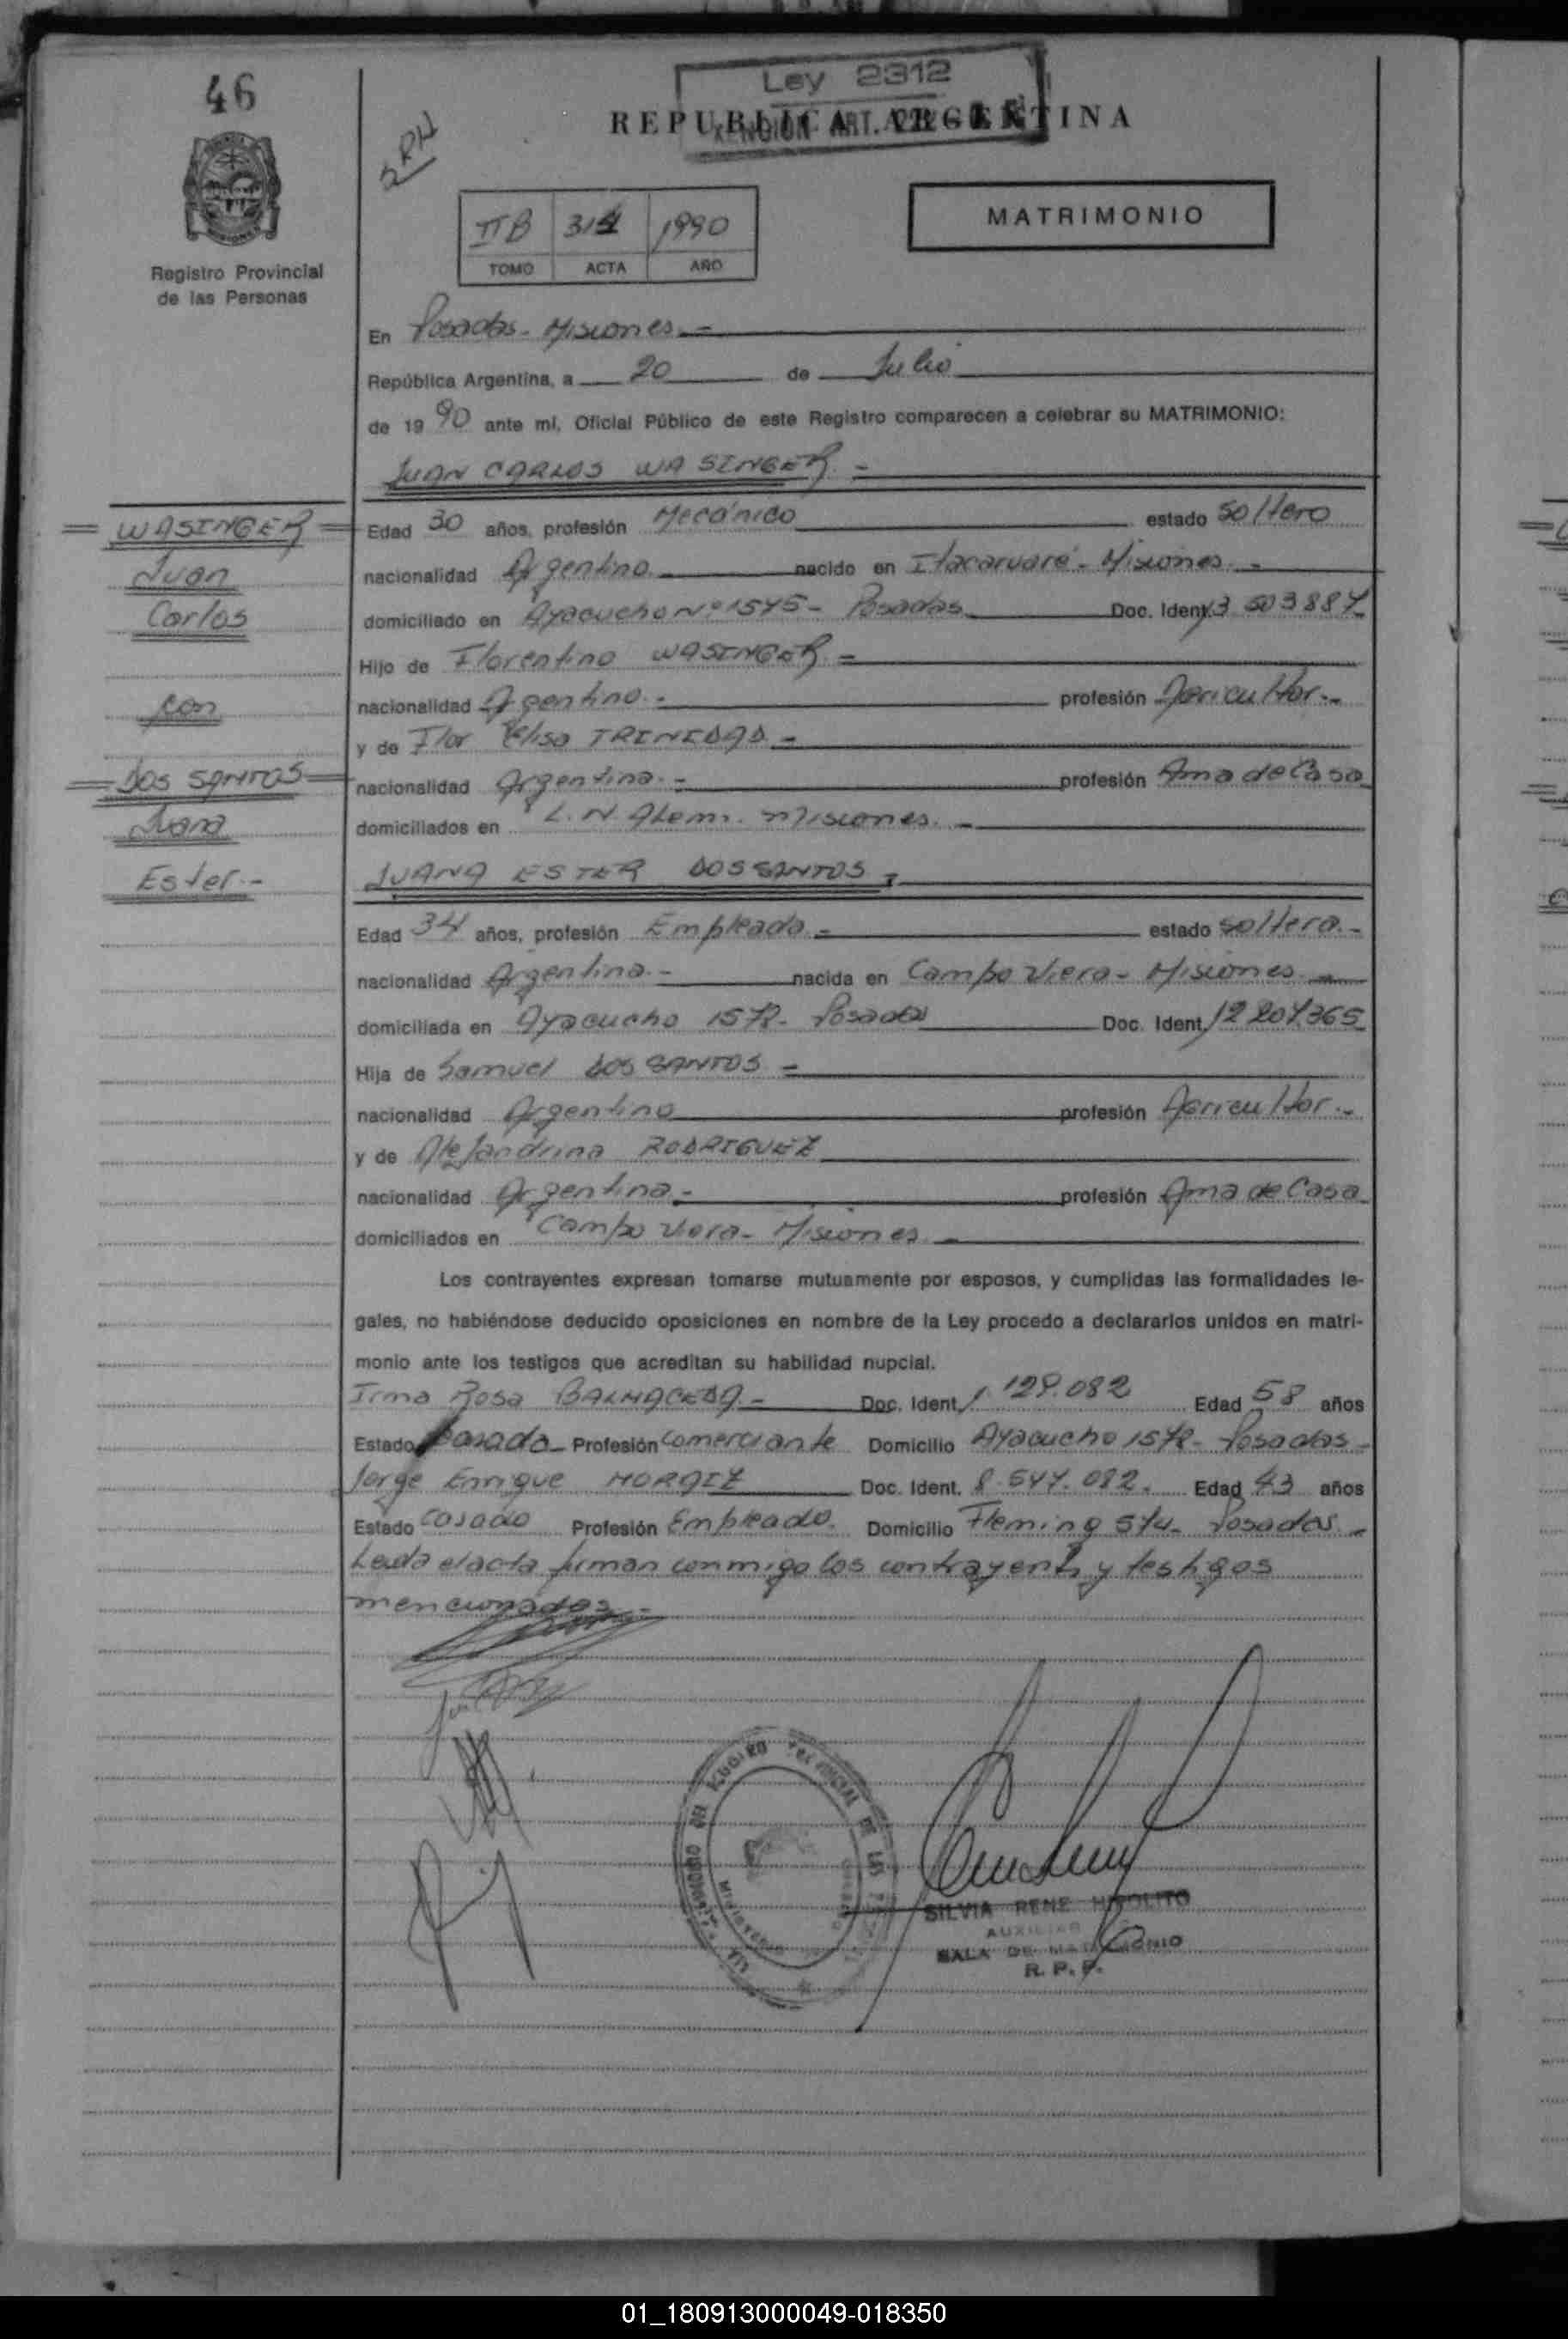 46
Registro Provincial
de las Personas
SRH
Ley 2312
REPUBLICA ARGENTINA
MATRIMONIO
II B 314 1990
TOMO ACTA AÑO
En Posadas - Misiones.-
República Argentina, a 20 de Julio
de 19 90 ante mí, Oficial Público de este Registro comparecen a celebrar su MATRIMONIO:
JUAN CARLOS WASINGER.-
WASINGER
Juan
Carlos
con
DOS SANTOS
Juana
Ester.-
Edad 30 años, profesión Mecánico estado soltero
nacionalidad Argentino nacido en Itacaruaré - Misiones.-
domiciliado en Ayacucho Nº 1545 - Posadas Doc. Ident. 13 503887
Hijo de Florentino WASINGER -
nacionalidad Argentino.- profesión Agricultor.-
y de Flor Elisa TRINIDAD.-
nacionalidad Argentina.- profesión Ama de Casa
domiciliados en L. N. Alem. Misiones.-
JUANA ESTER DOS SANTOS.-
Edad 34 años, profesión Empleada.- estado soltera.-
nacionalidad Argentina.- nacida en Campo Viera - Misiones.-
domiciliada en Ayacucho 1572 - Posadas Doc. Ident. 12 207.365
Hija de Samuel DOS SANTOS -
nacionalidad Argentino profesión Agricultor.-
y de Alejandrina RODRIGUEZ
nacionalidad Argentina.- profesión Ama de Casa
domiciliados en Campo Viera - Misiones.-
Los contrayentes expresan tomarse mutuamente por esposos, y cumplidas las formalidades le-
gales, no habiéndose deducido oposiciones en nombre de la Ley procedo a declararlos unidos en matri-
monio ante los testigos que acreditan su habilidad nupcial.
Irma Rosa BALMACEDA.- Doc. Ident. 1.129.082 Edad 58 años
Estado Casada - Profesión Comerciante Domicilio Ayacucho 1572 - Posadas -
Jorge Enrique MORAIZ Doc. Ident. 8.547.082. Edad 43 años
Estado casado Profesión Empleado. Domicilio Fleming 574 - Posadas.-
Leída el acta firman conmigo los contrayentes y testigos
mencionados.-
SILVIA RENE HIPOLITO
AUXILIAR
SALA DE MATRIMONIO
R. P. P.
01_180913000049-018350